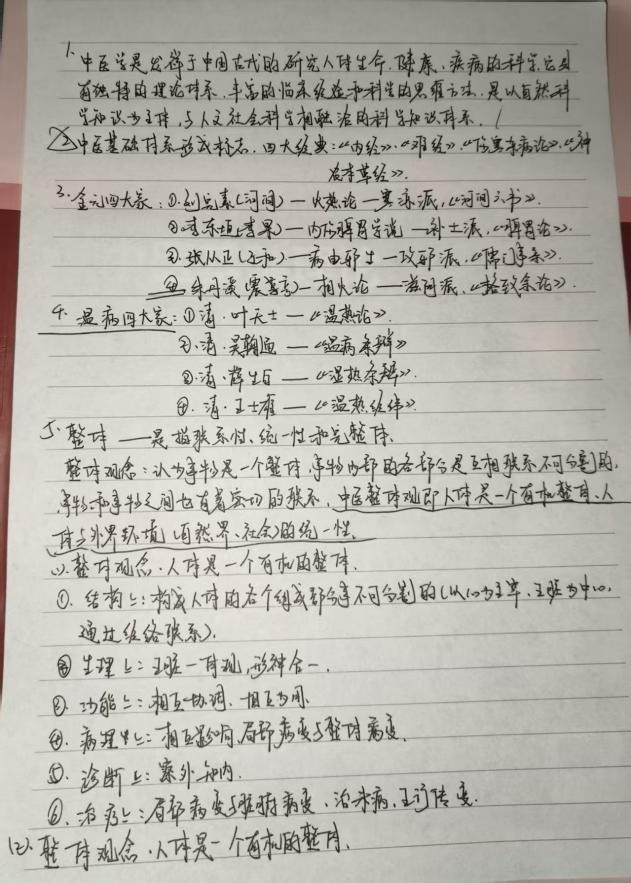 1. 中医学是发祥于中国古代的研究人体生命、健康、疾病的科学.它具
有独特的理论体系.丰富的临床经验和科学的思维方法.是以自然科
学知识为主体,与人文社会科学相融洽的科学知识体系.
②中医基础体系形成标志.四大经典:《内经》.《难经》.《伤寒杂病论》.《神
农本草经》.
3.金元四大家:①.刘完素(河间)—火热论—寒凉派,《河间六书》.
②.李东垣(李杲)—内伤脾胃学说—补土派,《脾胃论》.
③.张从正(子和).—病由邪生—攻邪派,《儒门事亲》.
④朱丹溪(震亨)—相火论—滋阴派,《格致余论》.
4.温病四大家:①清·叶天士—《温热论》.
②.清·吴鞠通—《温病条辨》
③.清·薛生白—《湿热条辨》.
④.清·王士雄—《温热经纬》.
5.整体——是指联系性、统一性和完整体.
整体观念:认为事物是一个整体,事物内部的各部分是互相联系不可分割的,
事物和事物之间也有着密切的联系.中医整体观即人体是一个有机整体,人
体与外界环境(自然界、社会)的统一性.
(1).整体观念.人体是一个有机的整体.
①.结构上:构成人体的各个组成部分是不可分割的(以心为主宰.五脏为中心,
通过经络联系).
②生理上:五脏一体观,形神合一.
③.功能上:相互协调.相互为用.
④.病理上:相互影响.局部病变与整体病变.
⑤.诊断上:察外知内.
⑥.治疗上:局部病变与整体病变.治未病.传变.
(2).整体观念.人体是一个有机的整体.